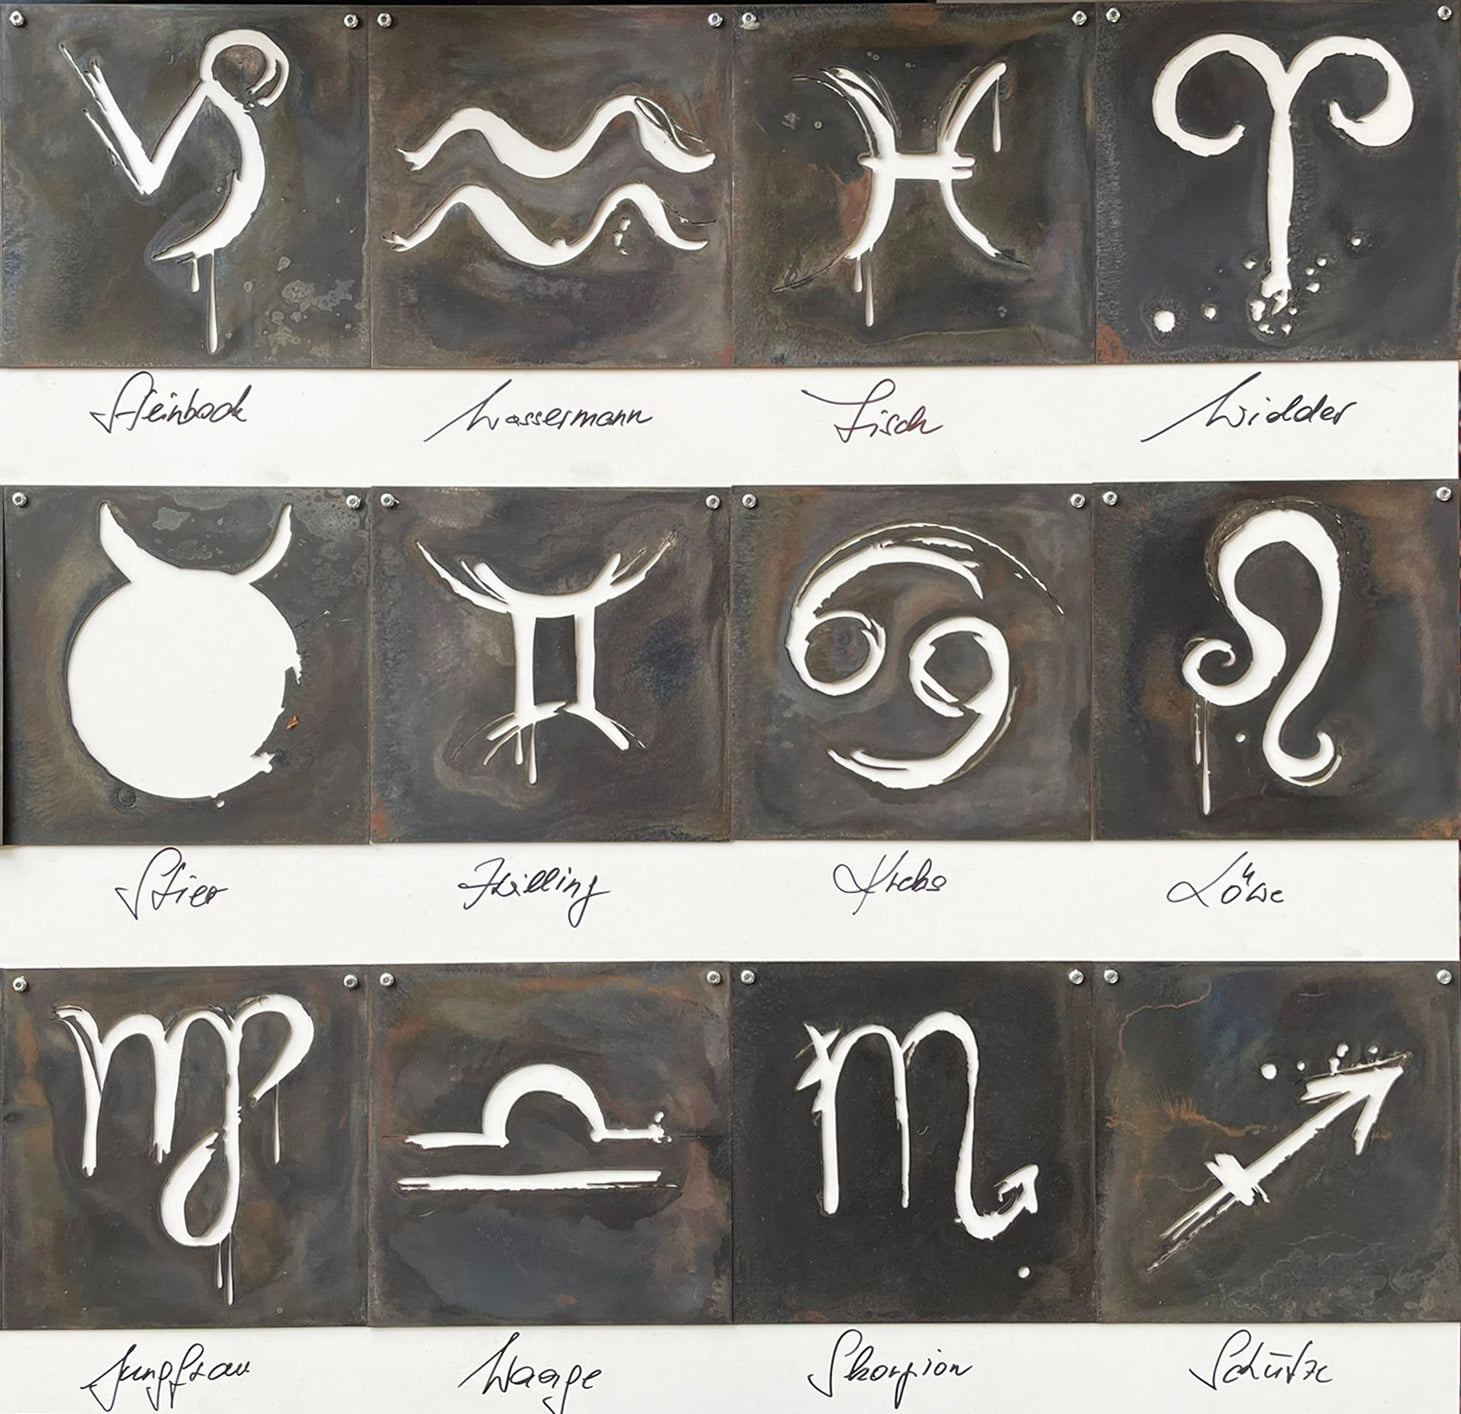 Steinbock
Wassermann
Fisch
Widder
Stier
Zwilling
Krebs
Löwe
Jungfrau
Waage
Skorpion
Schütze